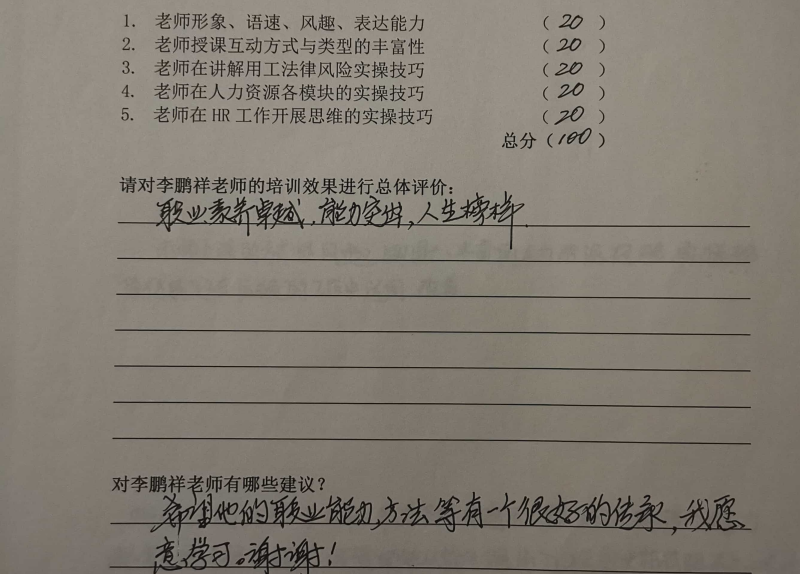 1. 老师形象、语速、风趣、表达能力 （ 20 ）
2. 老师授课互动方式与类型的丰富性 （ 20 ）
3. 老师在讲解用工法律风险实操技巧 （ 20 ）
4. 老师在人力资源各模块的实操技巧 （ 20 ）
5. 老师在 HR 工作开展思维的实操技巧 （ 20 ）
总分（ 100 ）
请对李鹏祥老师的培训效果进行总体评价：
职业素养卓越，能力突出，人生榜样.
对李鹏祥老师有哪些建议？
希望他的职业能力,方法等有一个很好的传承，我愿
意学习。谢谢！